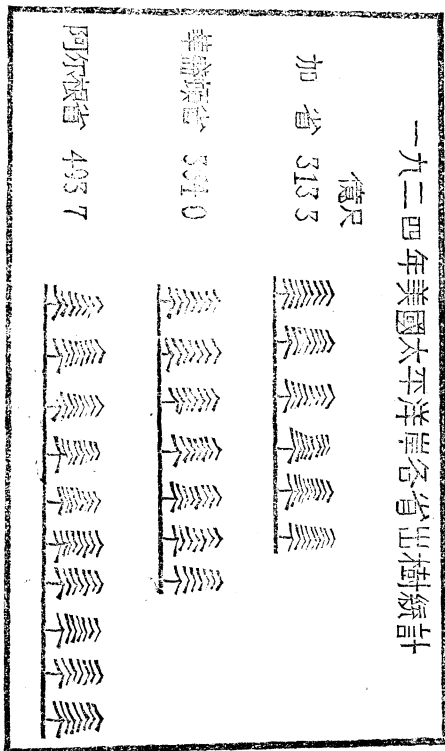 一九二四年美國太平洋岸各省出樹統計
億尺
加省 3133
華盛頓省 3640
阿尔根省 4937